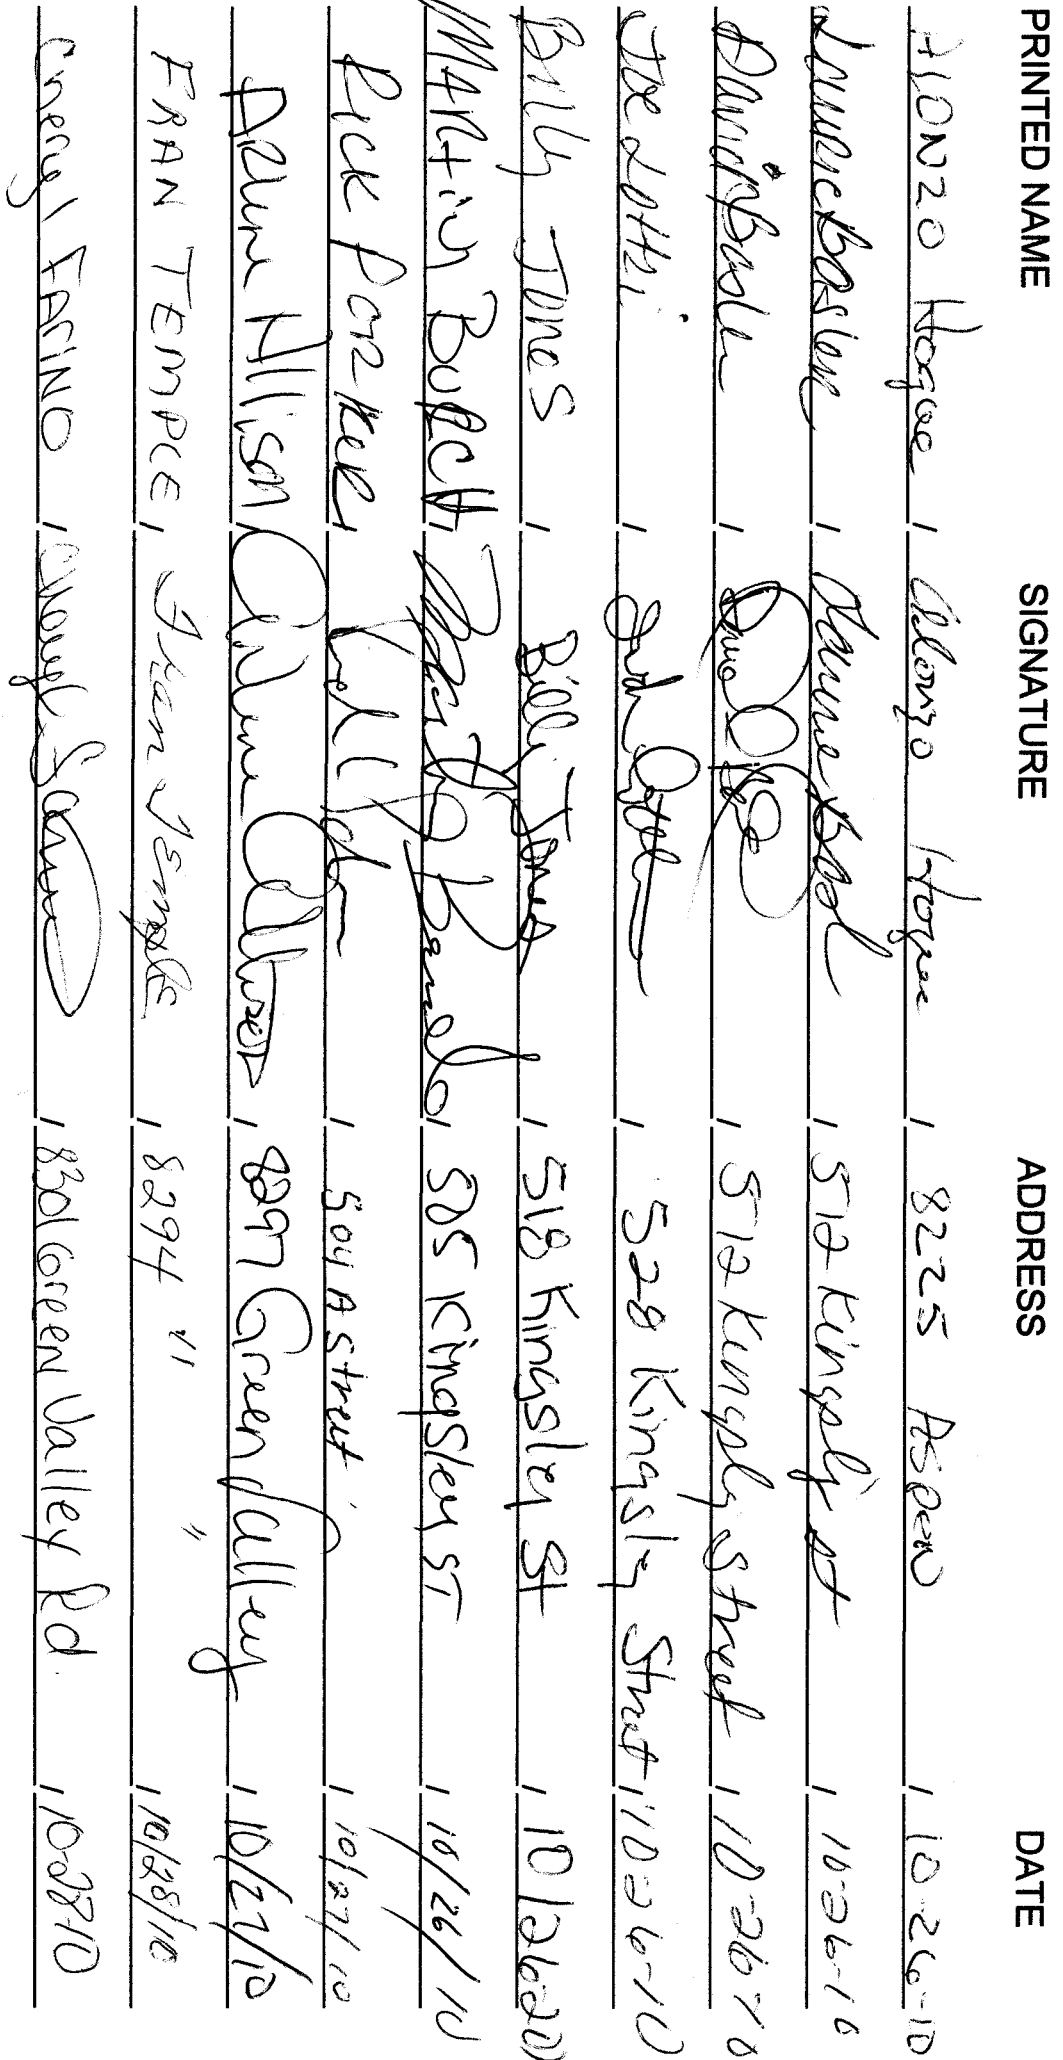 PRINTED NAME SIGNATURE ADDRESS DATE
Alonzo Hogue / Alonzo Hogue / 8225 Aspen / 10-26-10
Laurie Basler / / 512 Kingsly St / 10-26-10
David Basler / / 512 Kingsly Street / 10-26-10
Joe Lotti / / 528 Kingsly Street / 10-26-10
Billy Jones / Billy Jones / 518 Kingsley St / 10/26-20
MARtin BURCH / / 505 Kingsley ST / 10/26/10
Rick Parker / / 504 A street / 10/27/10
Arlene Allison / Arlene Allison / 8297 Green Valley / 10/27/10
FRAN TEMPLE / Fran Temple / 8294 " " / 10/28/10
Cheryl FARINO / Cheryl Farino / 8301 Green Valley Rd. / 10-28-10